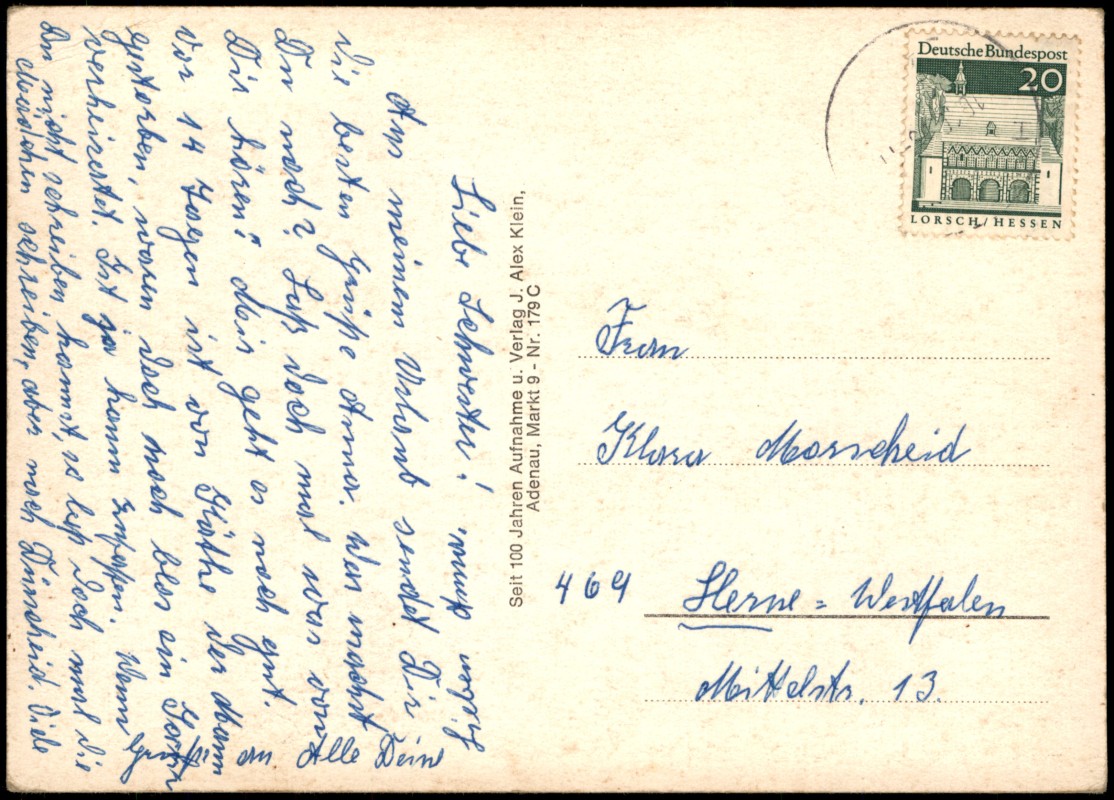 Liebe Schwester!
Aus meinem Urlaub sendet Dir
die besten Grüße Anna. Was machst
Du noch? Laß doch mal was von
Dir hören! Mir geht es noch gut.
Vor 14 Tagen ist von Käthe der Mann
gestorben, waren doch noch blos ein Jahr
verheiratet. Ist ja kaum zu fassen. Wenn
Du nicht schreiben kannst, so laß doch mal die
Mädchen schreiben, aber nach Dümscheid. Viele
Grüße an Alle Deine
Seit 100 Jahren Aufnahme u. Verlag J. Alex Klein,
Adenau, Markt 9 - Nr. 179 C
Deutsche Bundespost
20
LORSCH/HESSEN
Frau
Klara Morscheid
469 Herne = Westfalen
Mittelstr. 13.